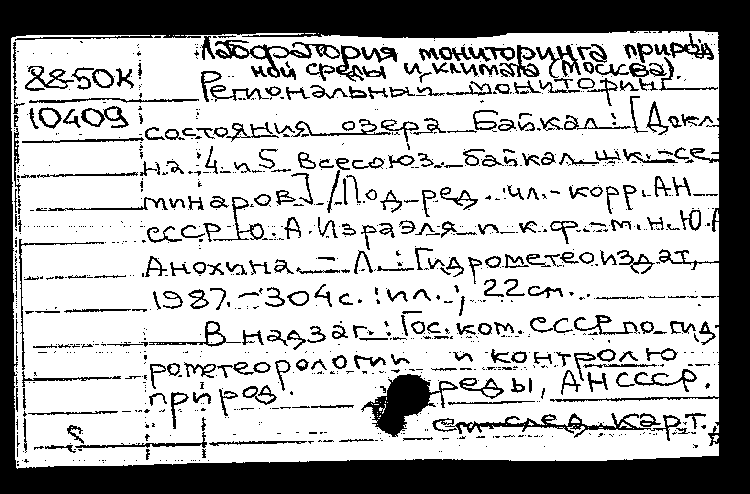 Лаборатория мониторинга природ
ной среды и климата (Москва).
88-50К
Региональный мониторинг
10409
состояния озера Байкал: [Докл.
на 4 и 5 Всесоюз. байкал. шк.-се-
минаров] / Под ред. чл.-корр. АН
СССР Ю.А. Израэля и к.ф.-м.н. Ю.А
Анохина. – Л.: Гидрометеоиздат,
1987. – 304 с.: ил.; 22 см.
В надзаг.: Гос. ком. СССР по гид-
рометеорологии и контролю
природ. реды, АН СССР.
см. след. карт.